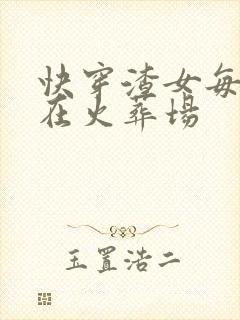 快穿渣女每天都
在火葬场
玉置浩二